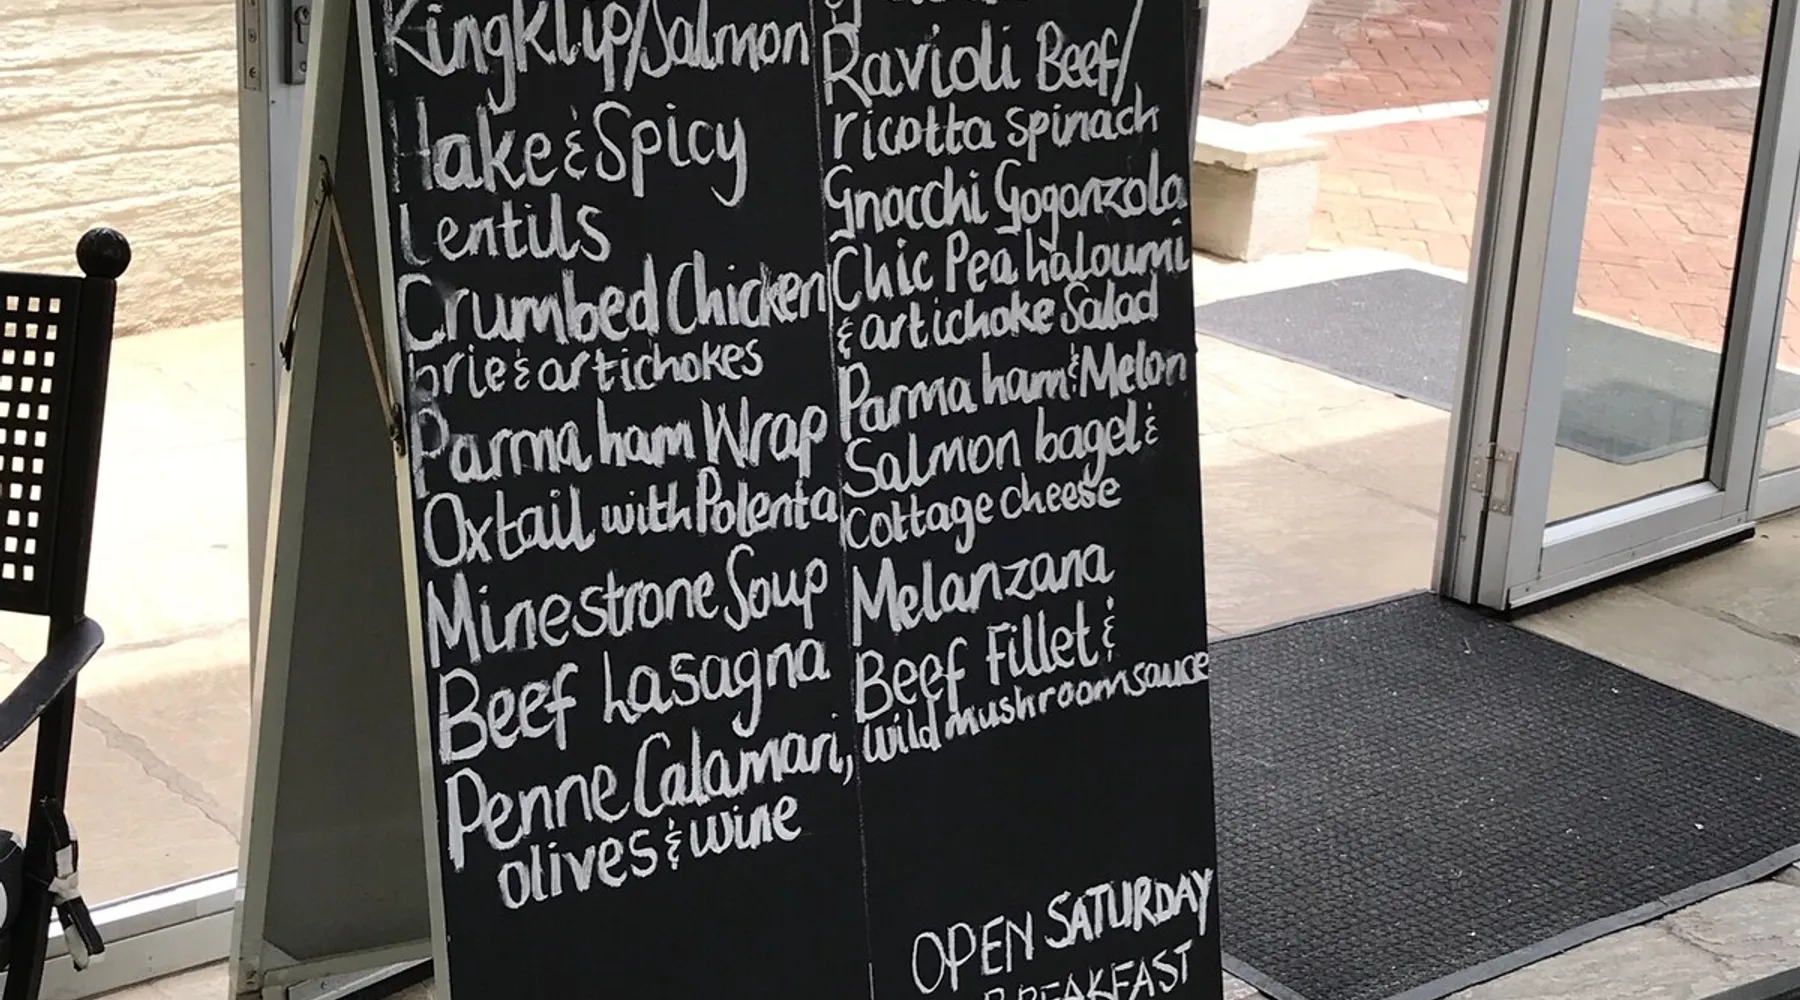 Kingklip/Salmon
Hake & Spicy
Lentils
Crumbed Chicken
brie & artichokes
Parma ham Wrap
Oxtail with Polenta
Minestrone Soup
Beef Lasagna
Penne Calamari,
olives & wine
Ravioli Beef/
ricotta spinach
Gnocchi Gogonzola
Chic Pea haloumi
& artichoke Salad
Parma ham & Melon
Salmon bagel &
cottage cheese
Melanzana
Beef Fillet &
wild mushroom sauce
OPEN SATURDAY
BREAKFAST